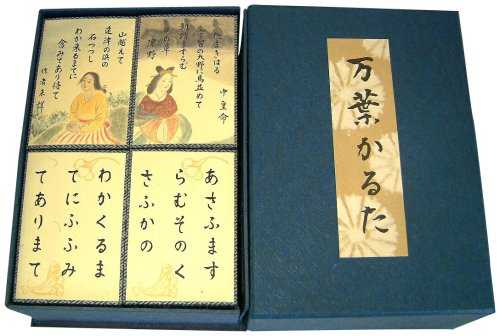 万葉かるた
たまきはる
宇智の大野に馬並めて
朝踏ますらむ
その草
深野
中皇命
山越えて
遠津の浜の
石つつし
わか来るまてに
含みてあり待て
作者未詳
あさふます
らむそのく
さふかの
わかくるま
てにふふみ
てありまて